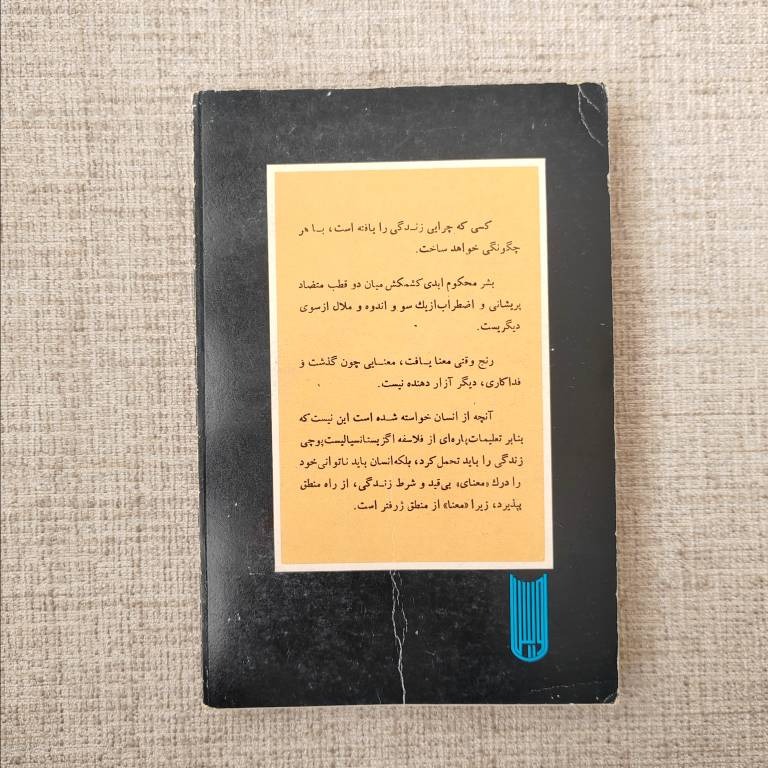 کسی که چرایی زندگی را یافته است، با هر
چگونگی خواهد ساخت.
بشر محکوم ابدی کشمکش میان دو قطب متضاد
پریشانی و اضطراب از یك سو و اندوه و ملال از سوی
دیگریست.
رنج وقتی معنا یافت، معنایی چون گذشت و
فداکاری، دیگر آزار دهنده نیست.
آنچه از انسان خواسته شده است این نیست که
بنابر تعلیمات پاره‌ای از فلاسفه اگزیستانسیالیست پوچی
زندگی را باید تحمل کرد، بلکه انسان باید ناتوانی خود
را درك «معنای» بی‌قید و شرط زندگی، از راه منطق
بپذیرد، زیرا «معنا» از منطق ژرفتر است.